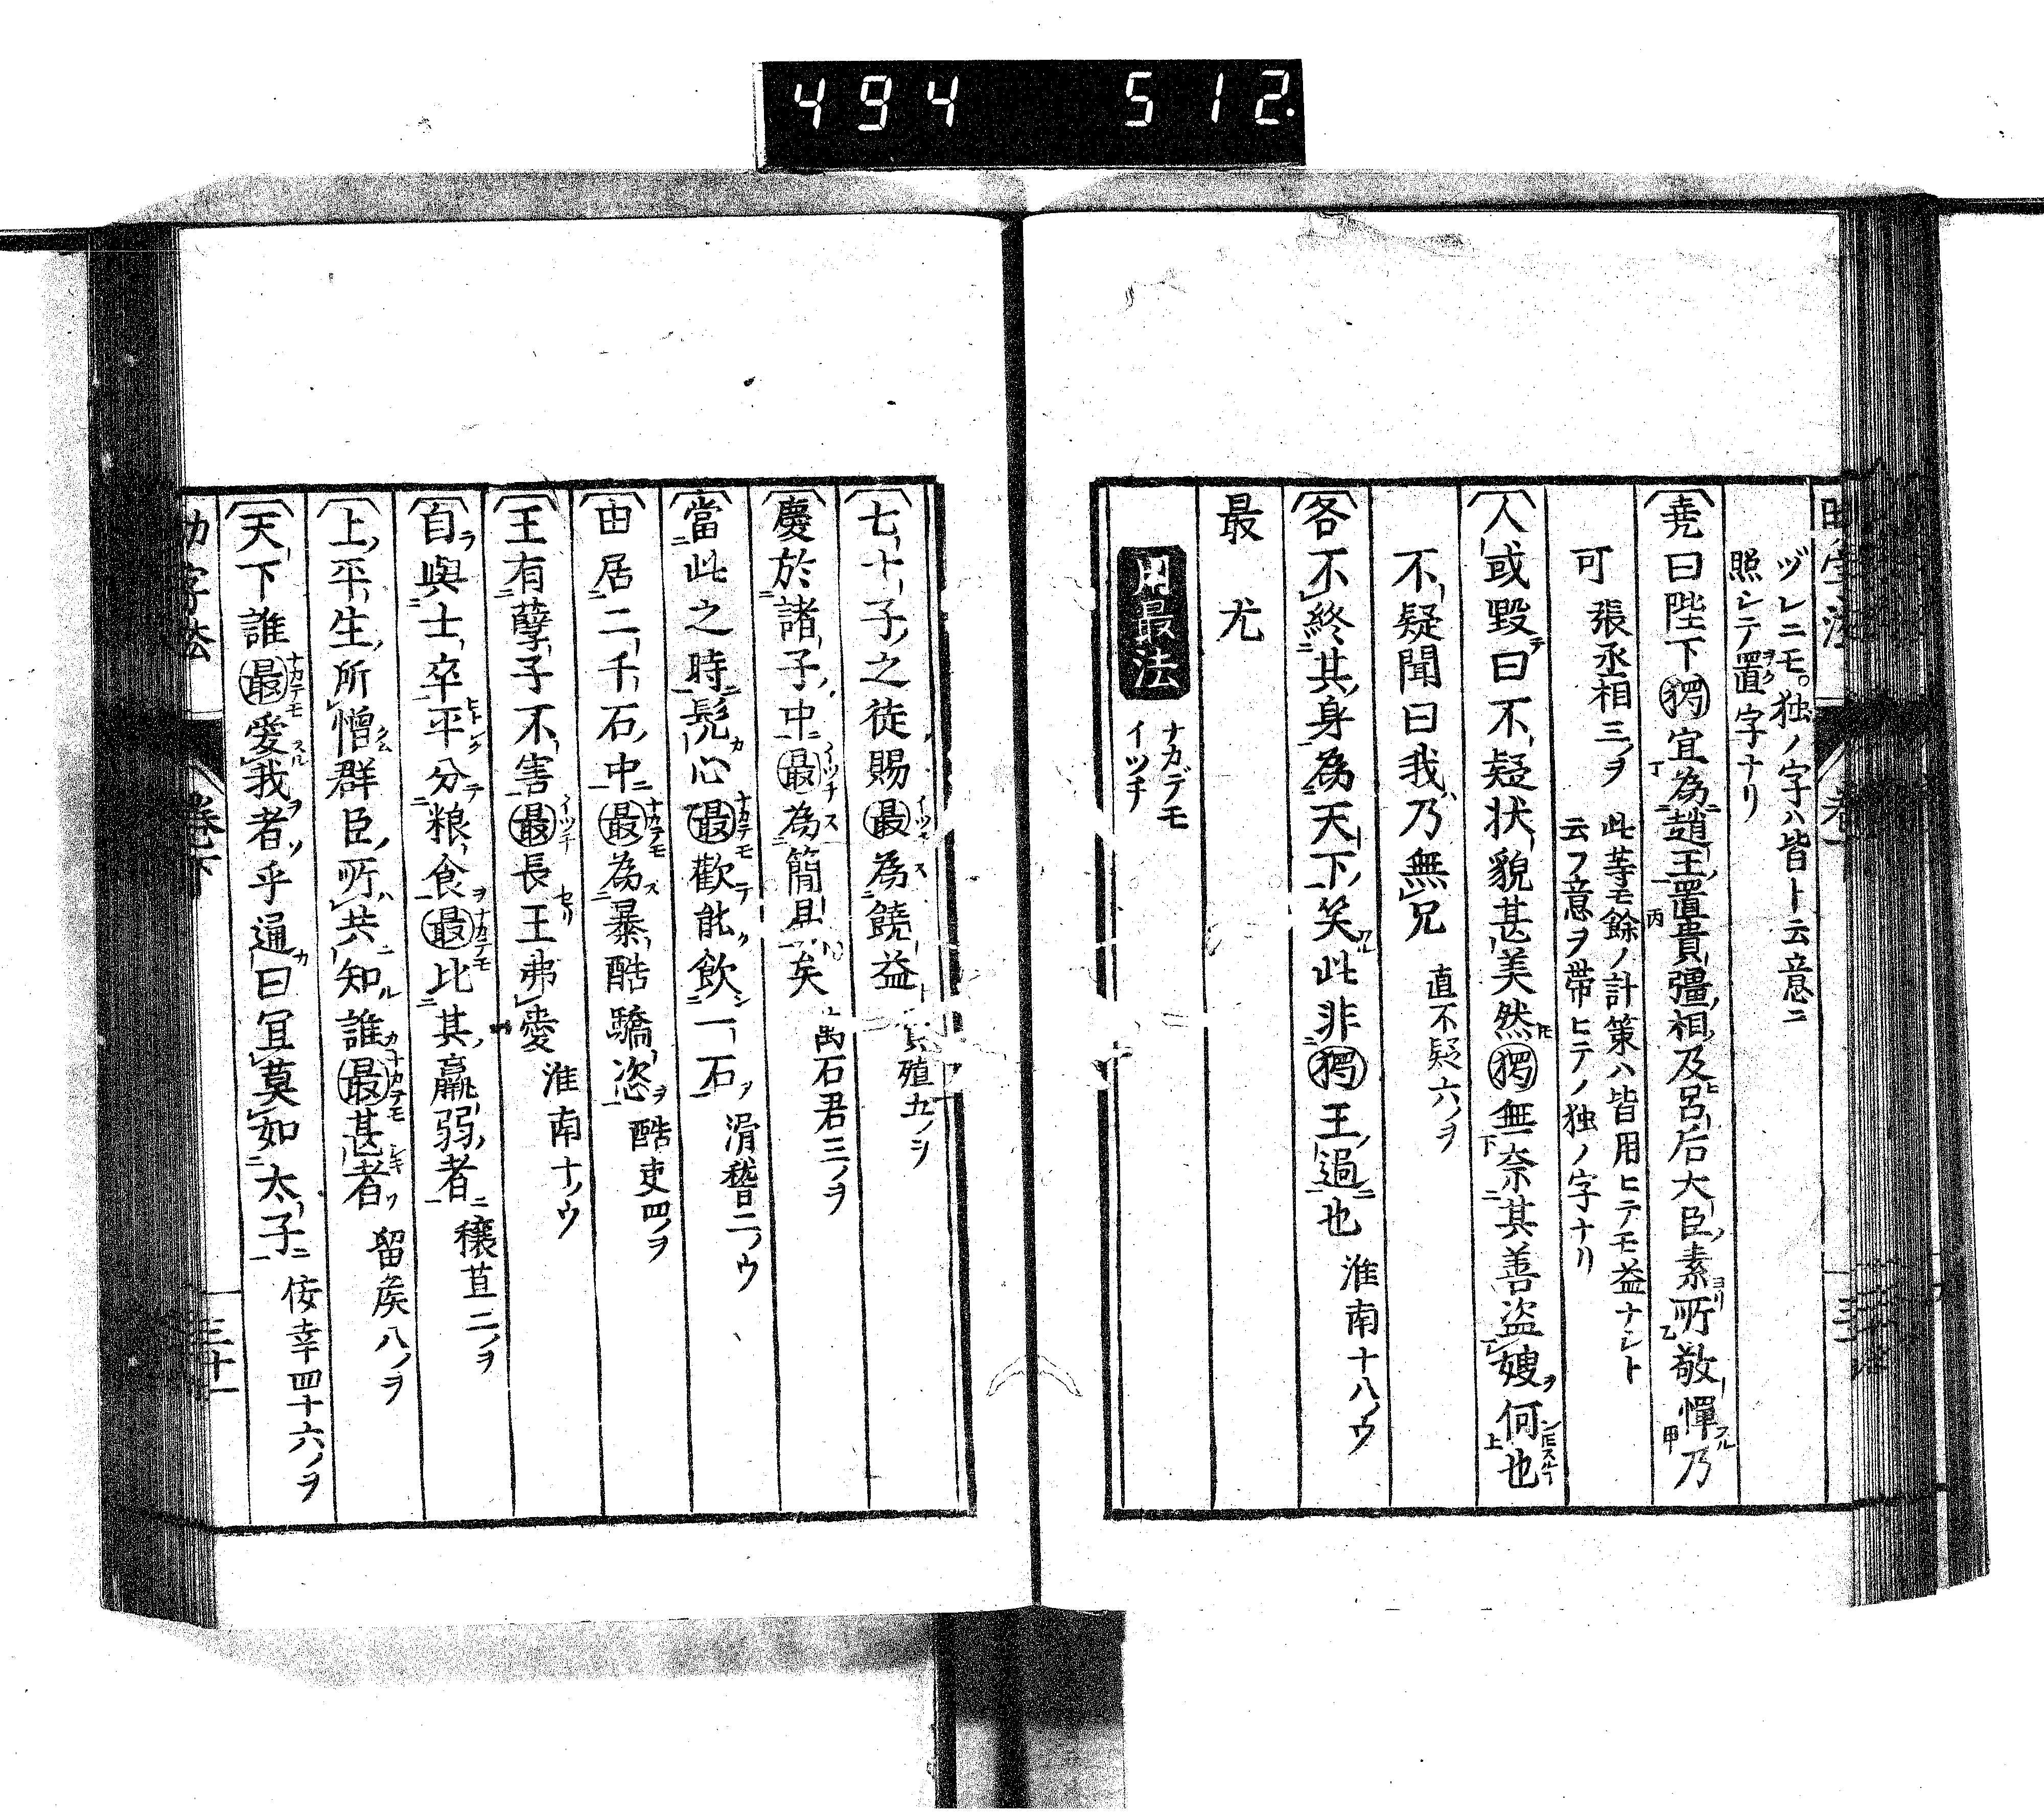 494 512.
ヅレニモ。独ノ字ハ皆ト云意ニ
照シテ置字ナリ
堯曰陛下獨宜為趙王置貴彊相及呂后大臣素所敬憚乃
可 張丞相三ノヲ 此等モ餘ノ計策ハ皆用ヒテモ益ナシト
云フ意ヲ帯ヒテノ独ノ字ナリ
人或毀曰不疑状貌甚美然獨無奈其善盗嫂何也
不疑聞曰我乃無兄 直不疑六ノヲ
各不終其身為天下笑此非獨王過也 淮南十八ノウ
最 尤
用最法 ナカデモ イツチ
七十子之徒賜最為饒益 殖五ノヲ
慶於諸子中最為簡易矣 石君三ノヲ
當此之時髡心最歡能飲一石 滑稽二ノウ
由居二千石中最為暴酷驕恣 酷吏四ノヲ
王有孽子不害最長王弗愛 淮南十ノウ
自與士卒平分粮食最比其羸弱者 穰苴二ノヲ
上平生所憎群臣所共知誰最甚者 留矦八ノヲ
天下誰最愛我者乎通曰宜莫如太子 佞幸四十六ノヲ
助字法 巻下 三十一